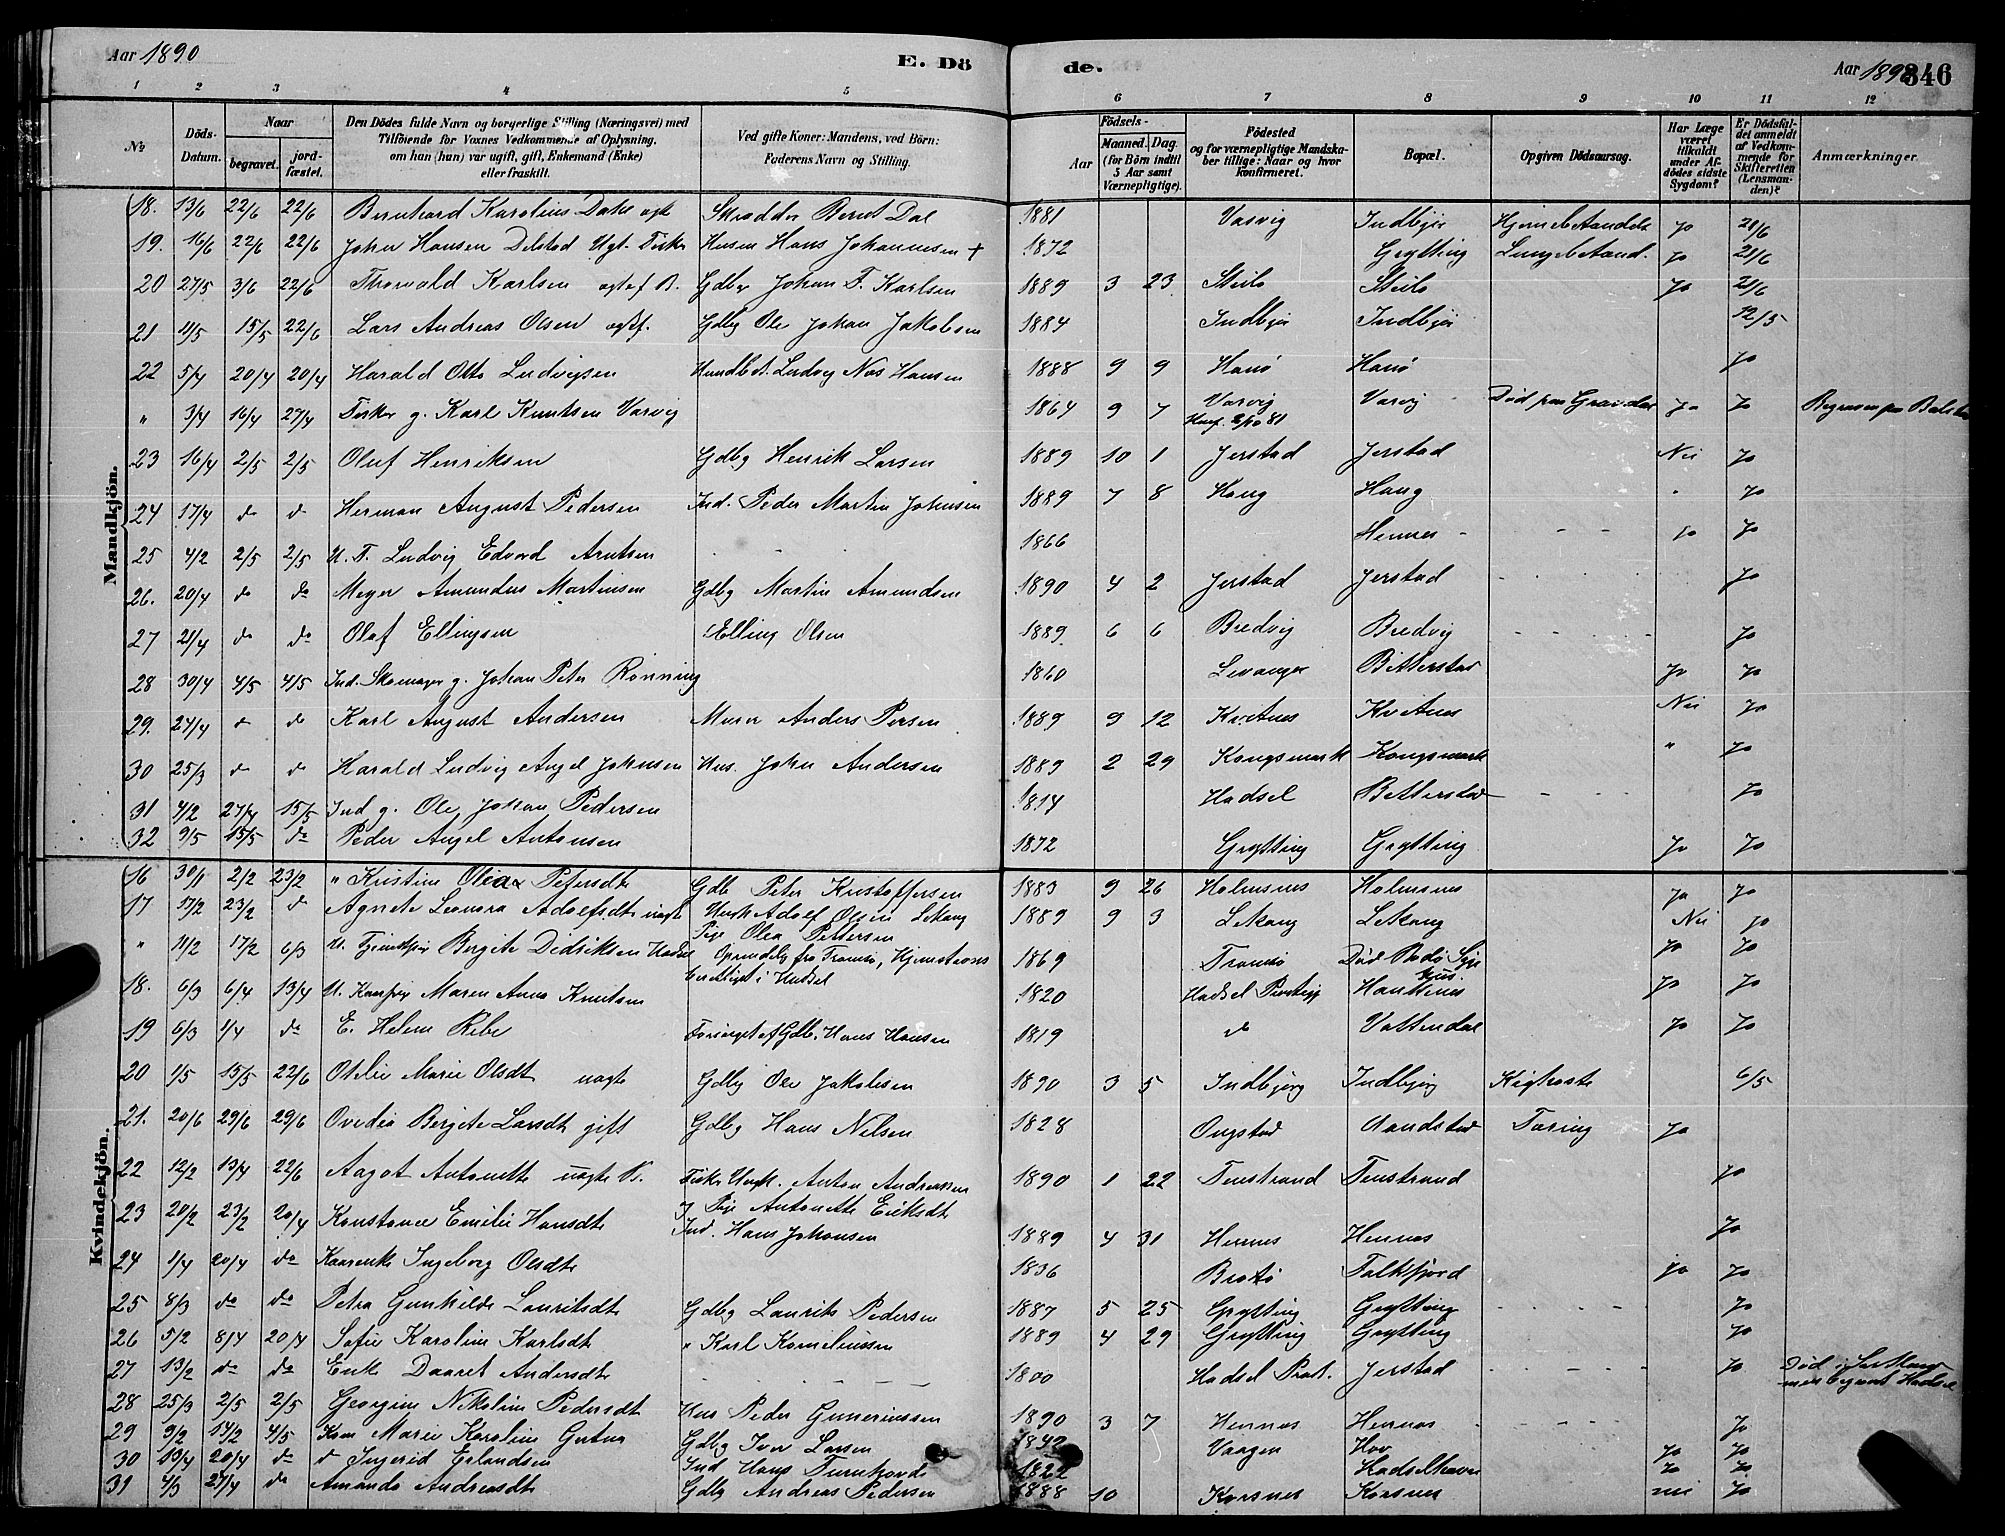 Aar 1890
E. Dö
de.
Aar 1890 346
1 2 3 4 5 6 7 8 9 10 11 12
№
Döds-Datum.
Naar
begravet.
jord-fæstet.
Den Dödes fulde Navn og borgerlige Stilling (Næringsvei) med
Tilföiende for Voxnes Vedkommende af Oplysning,
om han (hun) var ugift, gift, Enkemand (Enke)
eller fraskilt.
Ved gifte Koner: Mandens, ved Börn:
Faderens Navn og Stilling.
Aar
Födsels-
Maaned. Dag.
(for Börn indtil
5 Aar samt
Værnepligtige).
Födested
og for værnepligtige Mandska-
ber tillige: Naar og hvor
konfirmeret.
Bopæl.
Opgiven Dödsaarsag.
Har Læge
været
tilkaldt
under Af-
dödes sidste
Sygdom?
Er Dödsfal-
det anmeldt
af Vedkom-
mende for
Skifteretten
(Lensman-
den)?
Anmærkninger.
Mandkjön.
18. 13/6 22/6 22/6 Bernhard Karolius Dahl Skrædder Bernt Dal 1881 Vasvig Indbjør Jo 21/6
19. 16/6 22/6 22/6 Johan Hansen Ugt. Fisker Husm Hans Johannesen + 1872 Grytting Lungebetænd. Jo 21/6
20 27/5 3/6 22/6 Thorvald Karlsen Gdbr Johan F. Karlsen 1889 3 23 Steilo Steilo Jo 21/6
21 11/5 15/5 22/6 Lars Andreas Olsen Gdbg Ole Johan Jakobsen 1884 Indbjør Indbjør 12/5
22 5/4 20/4 20/4 Harald Otto Ludvigsen Ludvig Hansen 1888 9 9 Hanø Hanø Jo
" 3/4 16/4 27/4 Fisker g. Karl Knutsen Varvig 1864 9 7 Varvig Varvig Død paa Jo Jo Begraven paa
Konf. 2/10 81
23 16/4 2/5 2/5 Oluf Henriksen Gdbg Henrik Larsen 1889 10 1 Jerstad Jerstad Nei Jo
24 17/4 do d Herman August Pedersen Ind. Peder Martin Johnsen 1889 7 8 Haug Haug " Jo
25 4/2 2/5 2/5 U. F. Ludvig Edvard Arntsen 1866 Hennes - - - - Jo Jo
26. 20/4 do do Meyer Amundus Martinsen Gdbg Martin Amundsen 1890 4 2 Jerstad Jerstad Jo
27 21/4 do do Olaf Ellingsen Elling Olsen 1889 6 6 Bredvig Bredvig Jo
28 30/4 4/5 4/5 Ind. Skomager g. Johan Peter Rönning 1860 Levanger Bitterstad Jo Jo
29. 24/4 d do Karl August Andersen Murer Anders Persen 1889 9 12 Kvitnes Kvitnes Nei Jo
30 25/3 do do Harald Ludvig Angel Johnsen Hus. John Andersen 1889 2 29 Kongsmark Kongsmark " Jo
31 4/2 27/4 15/5 Ind g. Ole Johan Pedersen 1814 Hadsel Bitterstad - - - Jo
32 9/5 15/5 do Peder Angel Antonsen 1872 Grytting Grytting Jo Jo
Kvindekjön.
16 30/1 2/2 23/2 " Kristine Olea Petersdt Gdb Peter Kristoffersen 1883 9 26 Holmsnes Holmsnes Jo Jo
17 17/2 23/2 d Agnete Leonora Adolfsdt uægte Ungk Adolf Olsen Lekang 1889 9 3 Lekang Lekang Nei Jo
Pige Olea Pettersen
" 11/2 17/2 6/3 Bergite Didriksen Hadsel Oprindelig fra Tromsø, Hjemstavns 1869 Tromsø Død Bodø Syge Jo Jo
i Hadsel hus
18. 6/3 6/4 13/4 Maren Anna Knutsen 1820 Hadsel Jo Jo
19 6/3 1/4 do E. Helene Rebe Forsørget af Gdb. Hans Hansen 1819 do Vottendal Jo Jo
20 1/5 15/5 22/6 Otelie Marie Olsdt uægte Gdbg Ole Jakobsen 1890 3 5 Indbjørg Indbjørg Kighoste 6/5
21. 20/6 29/6 29/6 Ovedia Bergite Larsdt gift Gdbg Hans Nilsen 1828 Ongstad Aandstad Tæring Jo
22 12/2 13/4 22/6 Aagot Antonette uægte B. Fisker Ungk. Anton Andreassen 1890 1 22 Finstrand Finstrand Jo
g Pige Antonette Eriksdt
23 20/2 23/2 20/4 Konstance Emilie Hansdt Ind. Hans Johansen 1889 4 31 Hennes Hennes Jo
24 1/4 20/4 do Ingeborg Olsdt 1836 Brotø Falkfjord Jo Jo
25 8/3 do do Petra Gunhilde Lauritsdt Gdbg Laurits Pedersen 1887 5 25 Grytting Grytting - - - - Jo
26 5/2 8/4 20/4 Sofie Karoline Karlsdt " Karl Korneliussen 1889 4 29 Grytting Grytting Jo
27 13/2 do do Enke Daaret Andersdt 1800 Hadsel Prst. Jerstad - - - Jo Død i
Hadsel
28 25/3 2/5 2/5 Georgine Nikoline Pedersdt Hus Peder Guneriussen 1890 3 7 Hennes Hennes Jo
29 9/2 14/2 4/5 Kone Marie Karoline Gdbg Iver Larsen 1842 Vaagen Hov Jo Jo
30 13/4 20/4 do d Ingerid Erlandsen Ind Hans 1822 Hadselhavn Jo Jo
31 4/3 27/4 do Amanda Andreasdt Gdbg Andreas Pedersen 1888 10 Korsnes Korsnes nei Jo